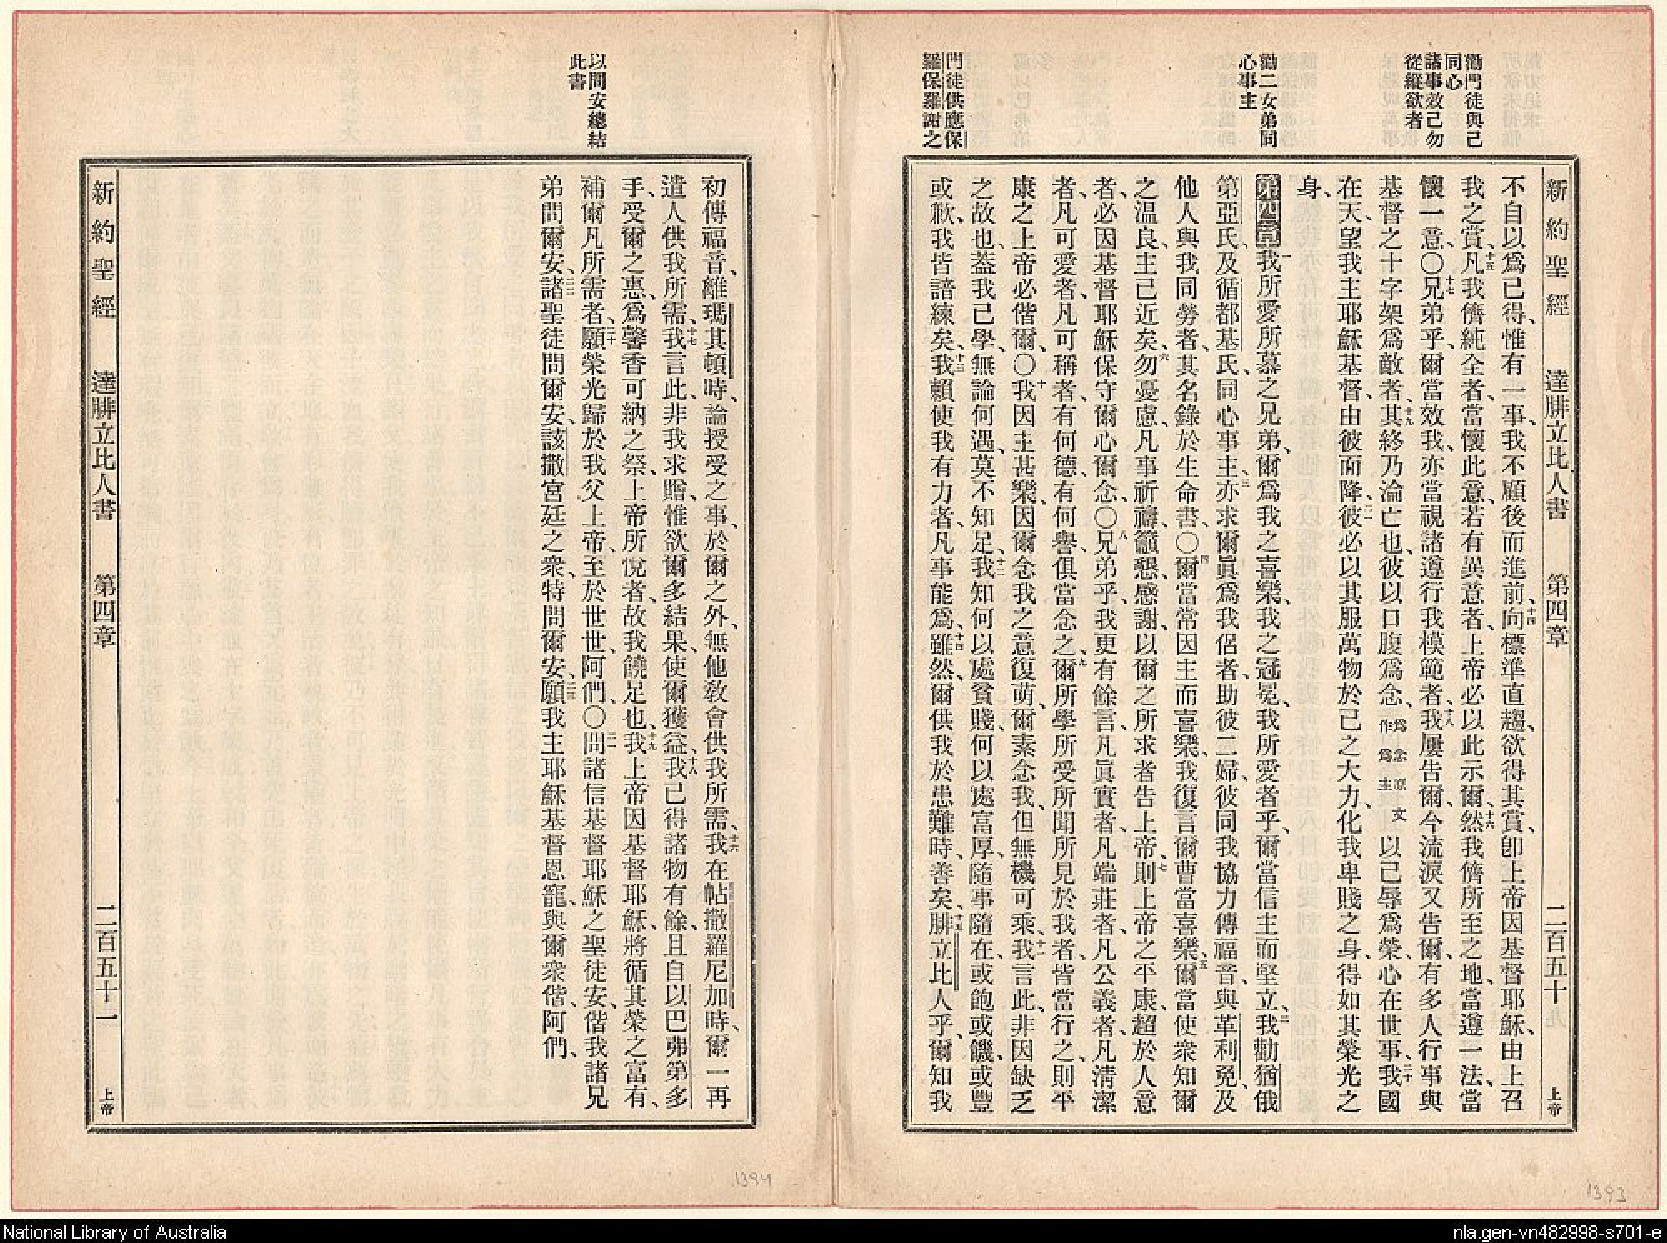 勸門徒與己
同心
諸事效己勿
從縱欲者
勸二女弟同
心事主
門徒供應保
羅保羅謝之
新約聖經 達腓立比人書 第四章 二百五十九 上帝
不自以爲已得、惟有一事、我不顧後而進前、十四向標準直趨、欲得其賞、卽上帝因基督耶穌、由上召
我之賞、十五凡我儕純全者、當懷此意、若有異意者、上帝必以此示爾、十六然我儕所至之地、當遵一法、當
懷一意、〇十七兄弟乎、爾當效我、亦當視諸遵行我模範者、十八我屢告爾、今流淚又告爾、有多人行事與
基督之十字架爲敵者、十九其終乃淪亡也、彼以口腹爲念、爲念原文作爲主以己辱爲榮、心在世事、二十我國
在天、望我主耶穌基督、由彼而降、二一彼必以其服萬物於己之大力、化我卑賤之身、得如其榮光之
身、
第四章一我所愛所慕之兄弟、爾爲我之喜樂、我之冠冕、我所愛者乎、爾當信主而堅立、二我勸猶俄
第亞氏、及循都基氏、同心事主、三亦求爾眞爲我侶者、助彼二婦、彼同我協力傳福音、與革利免、及
他人與我同勞者、其名錄於生命書、〇四爾當常因主而喜樂、我復言爾曹當喜樂、五爾當使衆知爾
之溫良、主已近矣、六勿憂慮、凡事祈禱籲懇感謝、以爾之所求者告上帝、七則上帝之平康、超於人意
者、必因基督耶穌保守爾心爾念、〇八兄弟乎、我更有餘言、凡眞實者、凡端莊者、凡公義者、凡清潔
者、凡可愛者、凡可稱者、有何德、有何譽、俱當念之、九爾所學所受所聞所見於我者、皆當行之、則平
康之上帝必偕爾、〇十我因主甚樂、因爾念我之意復萌、爾素念我、但無機可乘、十一我言此、非因缺乏
之故也、蓋我已學、無論何遇、莫不知足、十二我知何以處貧賤、何以處富厚、隨事隨在、或飽或饑、或豐
或歉、我皆諳練矣、十三我賴使我有力者、凡事能爲、十四雖然、爾供我於患難時、善矣、十五腓立比人乎、爾知我
以問安總結
此書
初傳福音、離瑪其頓時、論授受之事、於爾之外、無他敎會供我所需、十六我在帖撒羅尼加時、爾一再
遣人供我所需、十七我言此、非我求贈、惟欲爾多結果、使爾獲益、十八我已得諸物有餘、且自以巴弗第多
手、受爾之惠、爲馨香可納之祭、上帝所悅者、故我饒足也、十九我上帝因基督耶穌、將循其榮之富有、
補爾凡所需者、二十願榮光歸於我父上帝、至於世世、阿們、〇二一問諸信基督耶穌之聖徒安、偕我諸兄
弟問爾安、二二諸聖徒問爾安、該撒宮廷之衆、特問爾安、二三願我主耶穌基督恩寵、與爾衆偕、阿們、
新約聖經 達腓立比人書 第四章 二百五十一 上帝
1394
1393
National Library of Australia
nla.gen-vn482998-s701-e